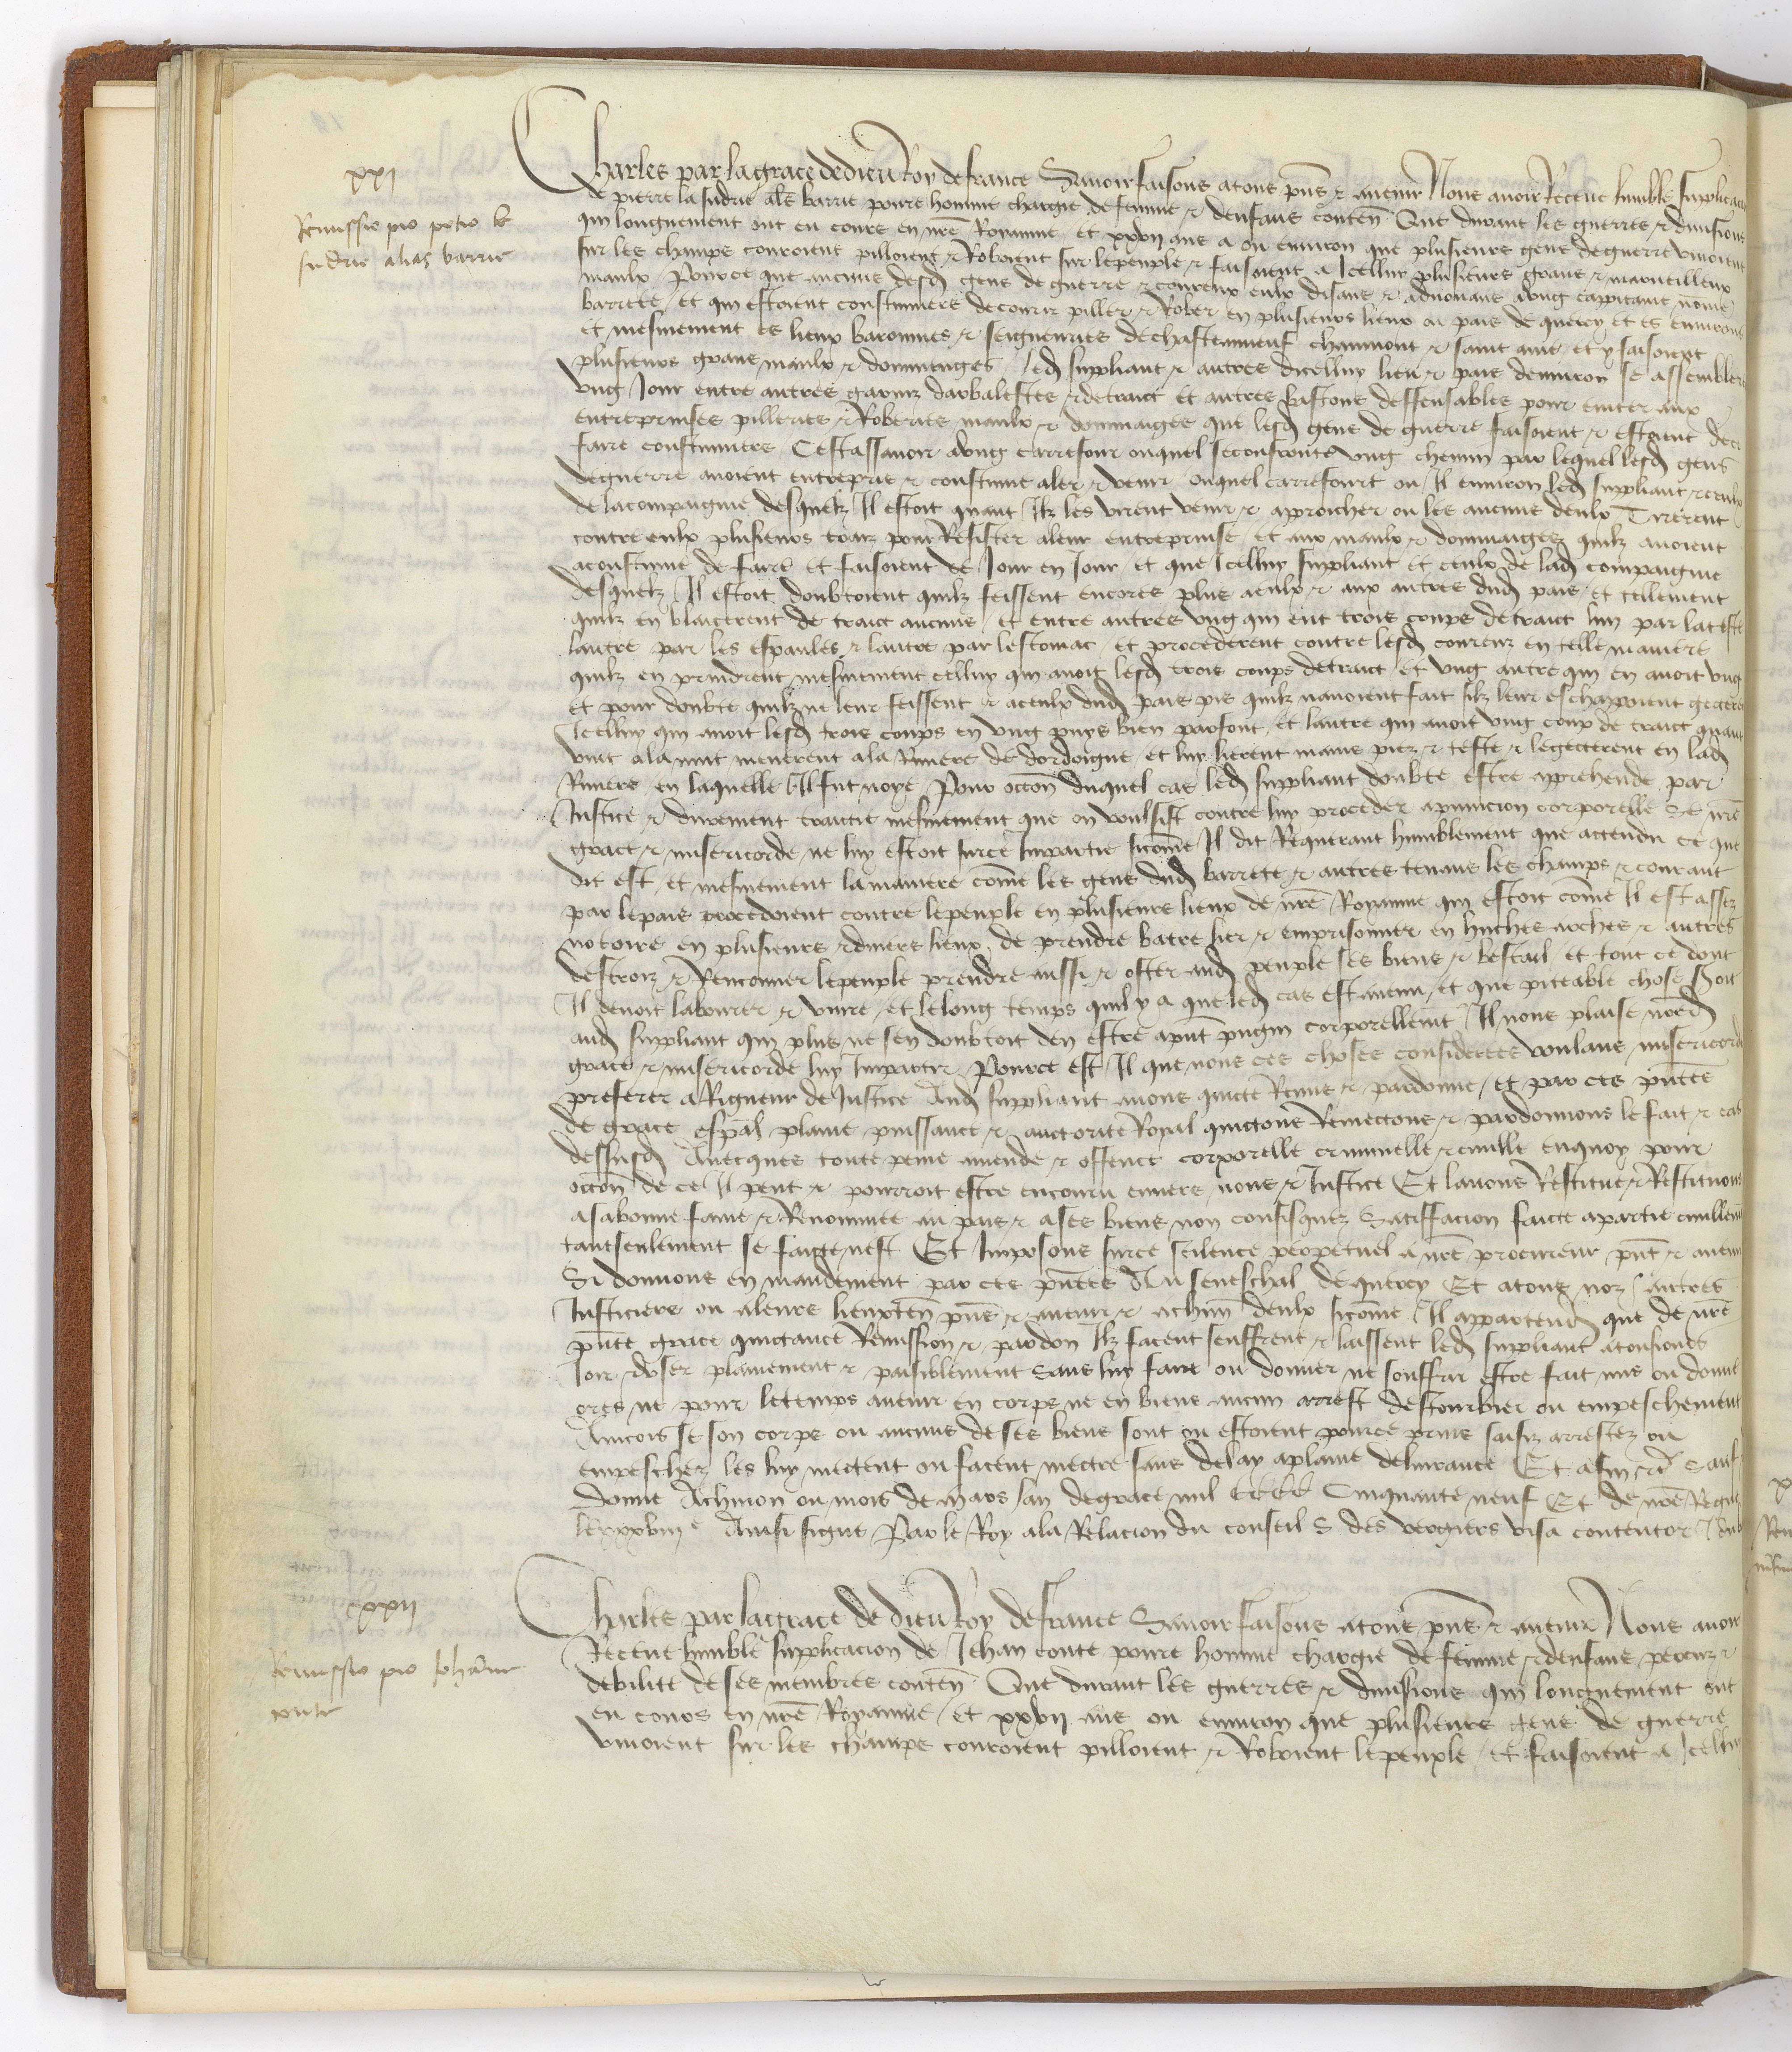 xxi
Remissio pro petro le
sudrie alias barrie
Charles par la grace de dieu Roy de france Savoir faisons a tous pns̄ et avenir Nous avoir Receue humble supplicacion
de pierre la sudrie als̄ barrie povre homme chargie de femme et denfans conten̄ Que durant les guerres et divisions
qui longuement ont eu cours en nrē Royaume et xxvii ans a ou environ que plusieurs gens de guerre vivoient
sur les champs couroient pilloient et Roboient sur le peuple et faisoient a Icelluy plusieurs grans et merveilleux
maulx Pource que aucuns desd gens de guerre et coureux eulx disans et advouans a ung cappitaine nōme
barrete et qui estoient coustumiers de courir piller et Rober en plusieurs lieux ou pais de quercy et es environs
et mesmement es lieux baronnies et seigneuries de chasteauneuf chaumont et saint ... et y faisoient
plusieurs grans maulx et dommenges led suppliant et autres dicelluy lieu et pais denviron se assemblere
ung Jour entre autres garniz darbalestes et de traict et autres bastons deffensables pour eviter aux
entreprinses pilleries et Roberies maulx et dommaiges que lesd gens de guerre faisoient et estoient de ce
faire coustumiers Cestassavoir a ung carrefour ouquel se confronte ung chemin par lequel lesd gens
de guerre avoient entreprins et coustume aler et venir ouquel carrefourt ou Il environ led suppliant et ceulx
de la compaignie desquelz Il estoit quant Ilz les virent venir et aproicher ou les aucuns deulx Tirerent
contre eulx plusieurs traiz pour Resister a leur entreprinse et aux maulx et dommaigez quilz avoient
acoustume de faire et faisoient de Jour en Jour et que Icelluy suppliant et ceulx de lad compaignie
desquelz Il estoit doubtoient quilz feissent encores plus a eulx et aux autres dud pais et tellement
quilz en blaicerent de traict aucuns et entre autres ung qui eut trois coups de traict lun par la teste
lautre par les espaules et lautre par lestomac et procederent contre lesd coureux en telle maniere
quilz en prindrent mesmement celluy qui avoit lesd trois coups de traict et ung autre qui en avoit ung
et pour doubte quilz ne leur feissent et a ceulx dud pais pis quilz navoient fait silz leur eschappoient gecterent
Icelluy qui avoit lesd trois coups en ung puys bien parfont et lautre qui avoit ung coup de traict quant
vint a la nuit menerent a la Riviere de dordoigne et luy lierent mains piez et teste et le gecterent en lad
Riviere en laquelle Il fut noye Pour occōn duquel cas led suppliant doubte estre apprehende par
Justice et durement traictie mesmement que on voulsist contre luy proceder a punicion corporelle Se nrē
grace et misericorde ne luy estoit sur ce Impartie sicomme Il dit Requerant humblement que actendu ce que
dit est et mesmement la maniere cōme les gens dud barrete et autres tenans les champs et courant
par le pais procedoient contre le peuple en plusieurs lieux de nrē Royaume qui estoit cōme Il est assez
notoire en plusieurs et divers lieux de prendre batre lier et emprisonner en huches arches et autres
destroiz et Renconner le peuple prendre aussi et oster aud peuple ses biens et bestail et tout ce dont
Il devoit labourer et vivre et le long temps quil y a que led cas est avenu et que piteable chose soit
aud suppliant qui plus ne sen doubtoit den estre apnt̄ pugni corporellemt Il nous plaise nosd
grace et misericorde luy Impartir Pource est Il que nous ces choses considerees voulans misericorde
preferer a Rigueur de Justice Aud suppliant avons quicte Remis et pardonne et par ces pntēs
de grace espāl plaine puissance et auctorite Royal quictons Remectons et pardonnons le fait et cas
dessusd Avecques toute peine amende et offence corporelle criminelle et civille en quoy pour
occōn de ce Il peut et pourroit estre encouru envers nous et Justice Et lavons Restitue et Restituons
a sa bonne fame et Renommee au pais et a ses biens non confisquez Satiffacion faicte a partie civillemt
tant seulement se faicte nest Et Imposons sur ce scilence perpetuel a nrē procureur pnt̄ et avenir
Si donnons en mandement par ces pntēs Au seneschal de quercy Et a tous noz autres
Justiciers ou a leurs lieuxten̄ pns̄ et avenir et a chūn deulx sicōme Il appartend que de nrē
pnte grace quictance Remission et pardon Ilz facent seuffrent et laissent led suppliant a tousiours
Joir et user plainement et paisiblement sans luy faire ou donner ne souffrir estre fait mis ou donne
ores ne pour le temps avenir en corps ne en biens aucun arrest destourbier ou empeschement
Aincois se son corps ou aucuns de ses biens sont ou estoient pource prins saisiz arrestez ou
empeschez les luy mectent ou facent mectre sans delay a plaine delivrance Et afin etc Sauf
donne A chinon ou mois de mars lan de grace mil cccc Cinquante neuf Et de nrē Regne
le xxxviiie Ainsi signe Par le Roy a la Relacion du conseil S des vergiers visa contentor
xxii
Remissio pro Johanne
conte
Charles par la grace de dieu Roy de france Savoir faisons a tous pns̄ et avenir Nous avoir
Receue humble supplicacion de Jehan conte povre homme chargie de femme et denfans et
debilite de ses membres conten̄ Que durant les guerres et divisions qui longuement ont
eu cours en nrē Royaume et xxvii ans ou environ que plusieurs gens de guerre
vivoient sur les champs couroient pilloient et Roboient le peuple et faisoient a Icelluy